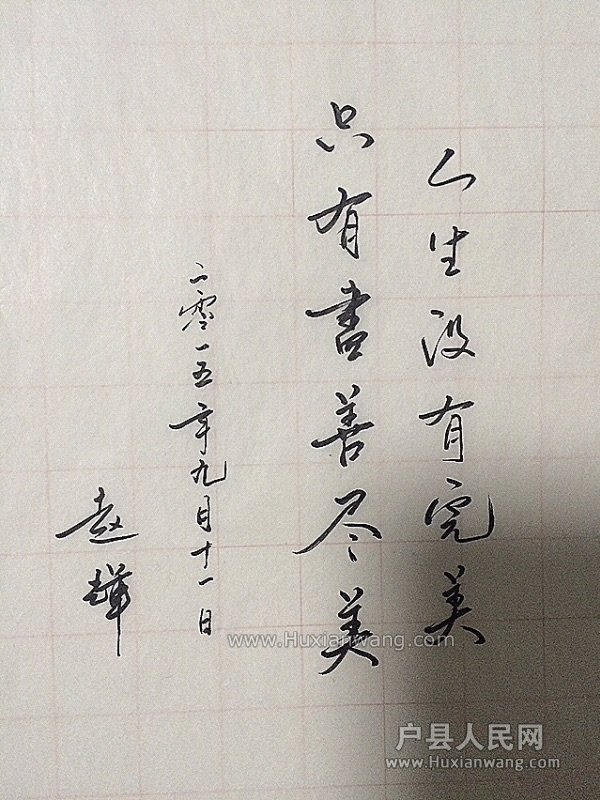 人生没有完美
只有盡善尽美
二零一五年九月十一日
赵輝
www.Huxianwang.com
户县人民网
www.Huxianwang.com